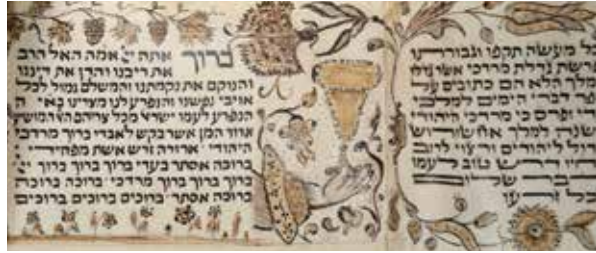 כל מעשה תקפו וגבורתו
פרשת גדלת מרדכי אשר גדלו
מלך הלא הם כתובים על
פר דברי הימים למלכי
ופרס כי מרדכי היהודי
שנה למלך אחשורוש
דול ליהודים ורצוי לרוב
חיו דרש טוב לעמו
דבר שלום
כל זרעו
ברוך אתה יי אמה האל הרב
את ריבנו והדן את דיננו
והנוקם את נקמתנו והמשלם גמול לכל
אויבי נפשנו והנפרע לנו מצרינו
הנפרע לעמו ישראל מכל צריהם
ארור המן אשר בקש לאבדי ברוך מרדכי
היהודי ארורה זרש אשת מפחידי
ברוכה אסתר בעדי ברוך ברוך ברוך
ברוך ברוך ברוך מרדכי ברוכה ברוכה
ברוכה אסתר ברוכים ברוכים ברוכים